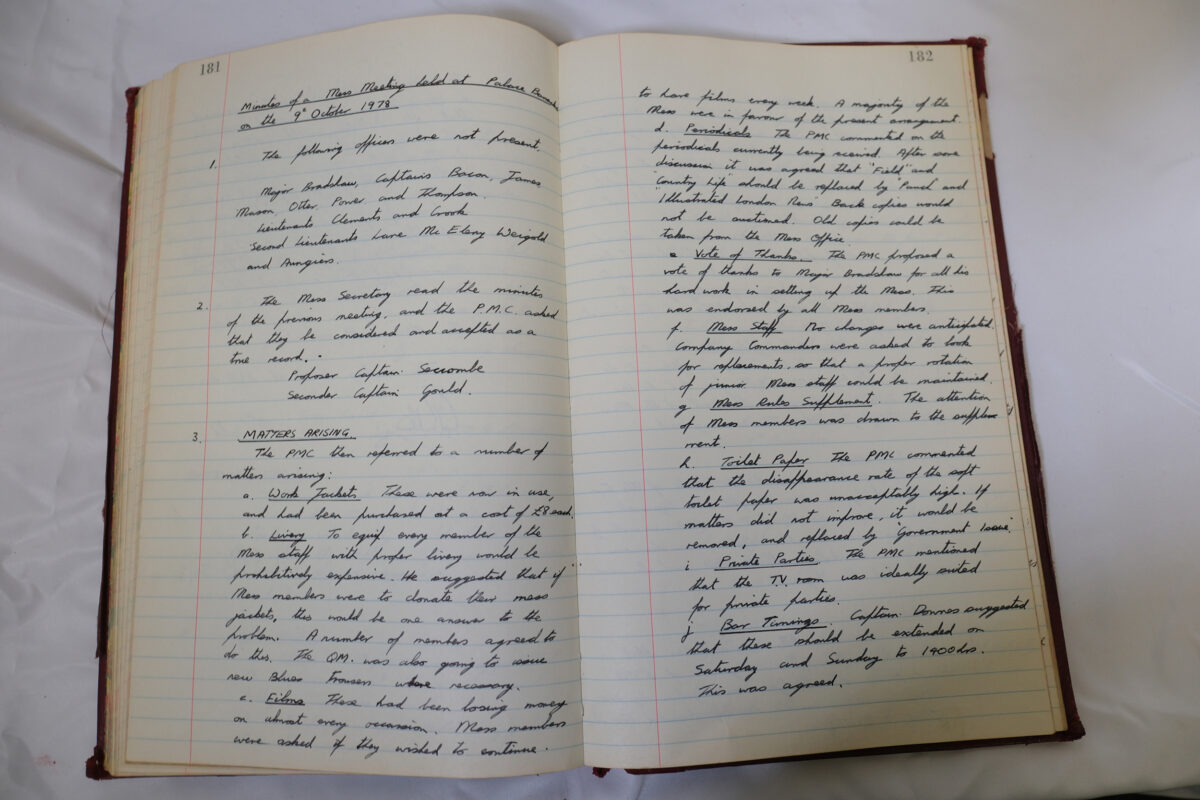 181
Minutes of a Mess Meeting held at Palace
on the 9th October 1978
1. The following officers were not present.
Major Bradshaw, Captains Bacon, James
Mason, Otter, Power and Thompson.
Lieutenants Clements and Crook
Second Lieutenants Lane Mc Eleny Weigold
and Aungiers.
2. The Mess Secretary read the minutes
of the previous meeting, and the P.M.C. asked
that they be considered and accepted as a
true record.
Proposer Captain Seccombe
Seconder Captain Gould.
3. MATTERS ARISING.
The PMC then referred to a number of
matters arising:
a. Work Jackets. These were now in use,
and had been purchased at a cost of £8 each.
b. Livery To equip every member of the
Mess staff with proper livery would be
prohibitively expensive. He suggested that if
Mess members were to donate their mess
jackets, this would be one answer to the
problem. A number of members agreed to
do this. The QM. was also going to issue
new Blues Trousers where necessary.
c. Films These had been losing money
on almost every occasion. Mess members
were asked if they wished to continue.
182
to have films every week. A majority of the
Mess were in favour of the present arrangement.
d. Periodicals The PMC commented on the
periodicals currently being received. After some
discussion it was agreed that "Field" and
"Country Life" should be replaced by "Punch" and
"Illustrated London News" Back copies would
not be auctioned. Old copies could be
taken from the Mess Office.
e Vote of Thanks. The PMC proposed a
vote of thanks to Major Bradshaw for all his
hard work in setting up the Mess. This
was endorsed by all Mess members.
f. Mess Staff No changes were anticipated.
Company Commanders were asked to look
for replacements. so that a proper rotation
of junior Mess staff could be maintained.
g Mess Rules Supplement. The attention
of Mess members was drawn to the supple
ment.
h. Toilet Paper The PMC commented
that the disappearance rate of the soft
toilet paper was unacceptably high. If
matters did not improve, it would be
removed, and replaced by 'Government issue'.
i Private Parties. The PMC mentioned
that the T.V. room was ideally suited
for private parties.
j Bar Timings. Captain Donnes suggested
that these should be extended on
Saturday and Sunday to 1400hrs.
This was agreed.